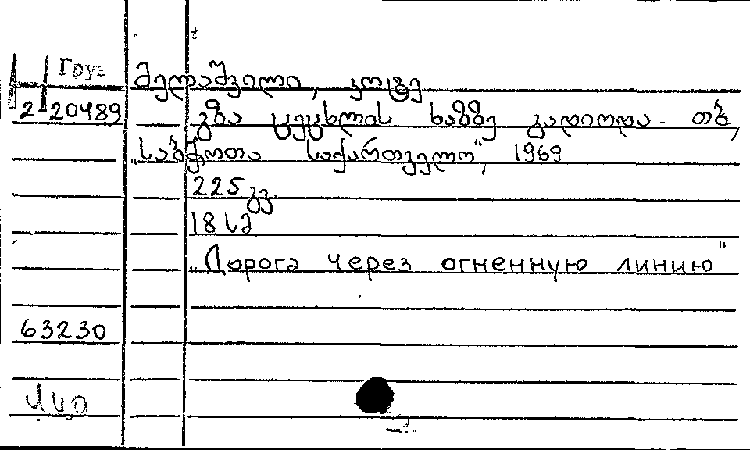 Груз
მელაშვილი, კოტე
2 20489
გზა ცეცხლის ხაზზე გადიოდა. თბ,
„საბჭოთა საქართველო", 1969
225 გვ.
18 სმ
„Дорога через огненную линию"
63230